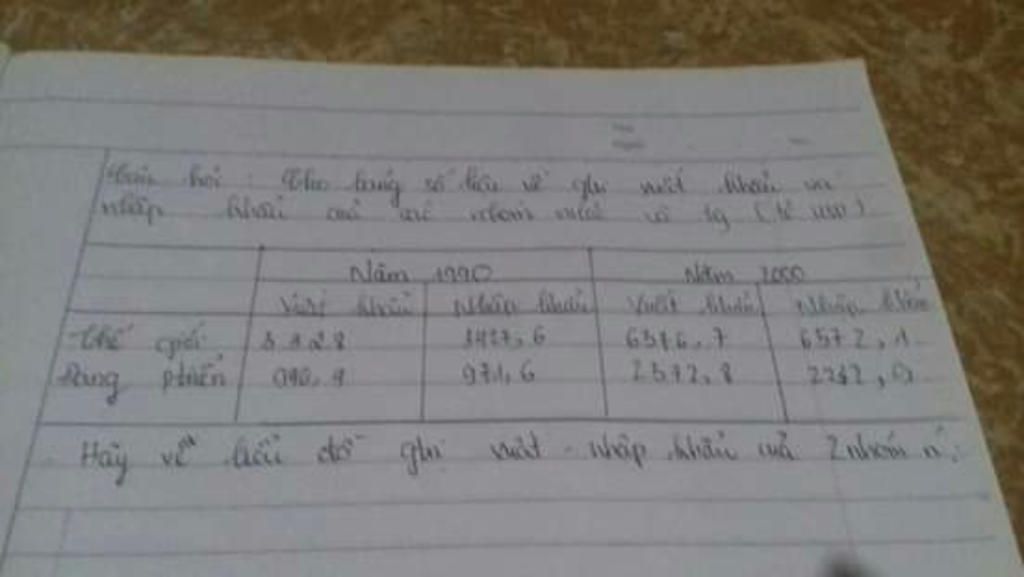 Câu hỏi : Cho bảng số liệu về gtr xuất khẩu và
nhập khẩu của các nhóm nước và tg (tỉ USD)
Năm 1990 Năm 2000
Xuất khẩu Nhập khẩu Xuất khẩu Nhập khẩu
Thế giới 3427,6 6376,7 6572,1
Đang phát triển 971,6 2372,8
Hãy vẽ biểu đồ gtr xuất - nhập khẩu của 2 nhóm n.